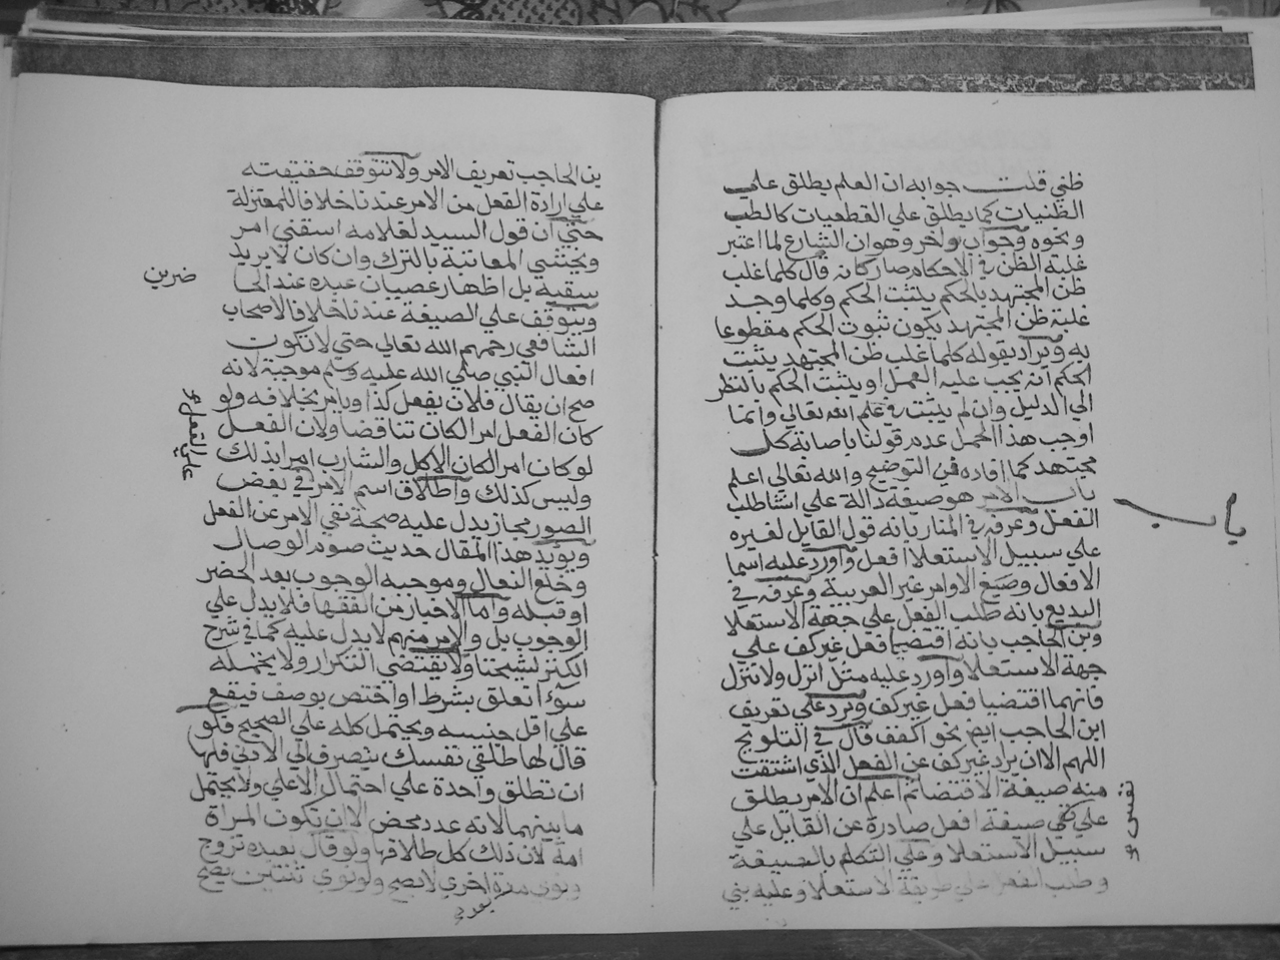 ظني قلت جوابه ان العلم يطلق علي
الظنيات كما يطلق علي القطعيات كالطب
ونحوه وجواب اخر وهو ان الشارع لما اعتبر
غلبة الظن في الاحكام صار كانه قال كلما غلب
ظن المجتهد بالحكم يثبت الحكم وكلما وجد
غلبة ظن المجتهد يكون ثبوت الحكم مقطوعا
به ويراد بقوله كلما غلب ظن المجتهد يثبت
الحكم انه يجب عليه العمل او يثبت الحكم بالنظر
الي الدليل وان لم يثبت في علم الله تعالي وانما
اوجب هذا الحمل عدم قولنا باصابة كل
مجتهد كما افاده في التوضيح والله تعالي اعلم
باب الامر هو صيغة دالة علي انشا طلب
الفعل وعرفه في المنار بانه قول القايل لغيره
علي سبيل الاستعلا افعل واورد عليه اسما
الافعال وصيغ الاوامر غير العربية وعرفه في
البديع بانه طلب الفعل علي جهة الاستعلا
وبن الحاجب بانه اقتضا فعل غير كف علي
جهة الاستعلا واورد عليه مثل اترل ولا تترل
فانهما اقتضيا فعل غير كف ويرد علي تعريف
ابن الحاجب ايضا نحو اكفف قال في التلويح
اللهم الا ان يراد غير كف عن الفعل الذي اشتقت
منه صيغة الاقتضا ثم اعلم ان الامر يطلق
علي صيغة افعل صادرة عن القايل علي
سبيل الاستعلا وعلي التكلم بالصيغة
وطلب الفعل علي طريقة الاستعلا وعليه بني
باب
نفس
بن الحاجب تعريف الامر ولا تتوقف حقيقته
علي ارادة الفعل من الامر عندنا خلافا للمعتزلة
حتي ان قول السيد لغلامه اسقني امر
ويجتني المعاتبة بالترك وان كان لا يريد
سقيه بل اظهار عصيان عبده عند الحا
ويتوقف علي الصيغة عندنا خلافا لاصحاب
الشافعي رحمهم الله تعالي حتي لا تكون
افعال النبي صلي الله عليه وسلم موجبة لانه
صح ان يقال فلان يفعل كذا ويامر بخلافه ولو
كان الفعل امرا لكان تناقضا ولان الفعل
لو كان امرا لكان الاكل والشارب امرا بذلك
وليس كذلك واطلاق اسم الامر في بعض
الصور مجاز يدل عليه صحة نفي الامر عن الفعل
ويؤيد هذا المقال حديث صوم الوصال
وخلع النعال وموجبه الوجوب بعد الحضر
او قبله واما الاخبار من الفقها فلا يدل علي
الوجوب بل والامر منهم لا يدل عليه كما في شرح
الكنز لشيخنا ولا يقتضي التكرار ولا يحتمله
سوءا تعلق بشرط او اختص بوصف فيقع
علي اقل جنسه ويحتمل كله علي الصحيح فلو
قال لها طلقي نفسك ينصرف الي الادني فلها
ان تطلق واحدة علي احتمال الاعلي ولا يحتمل
ما بينهما لانه عدد محض الا ان تكون المراة
امة لان ذلك كل طلاقها ولو قال لعبده تزوج
ونوي مرة اخري لا يصح ولو نوي ثنتين يصح
ضرين
علي الفعل